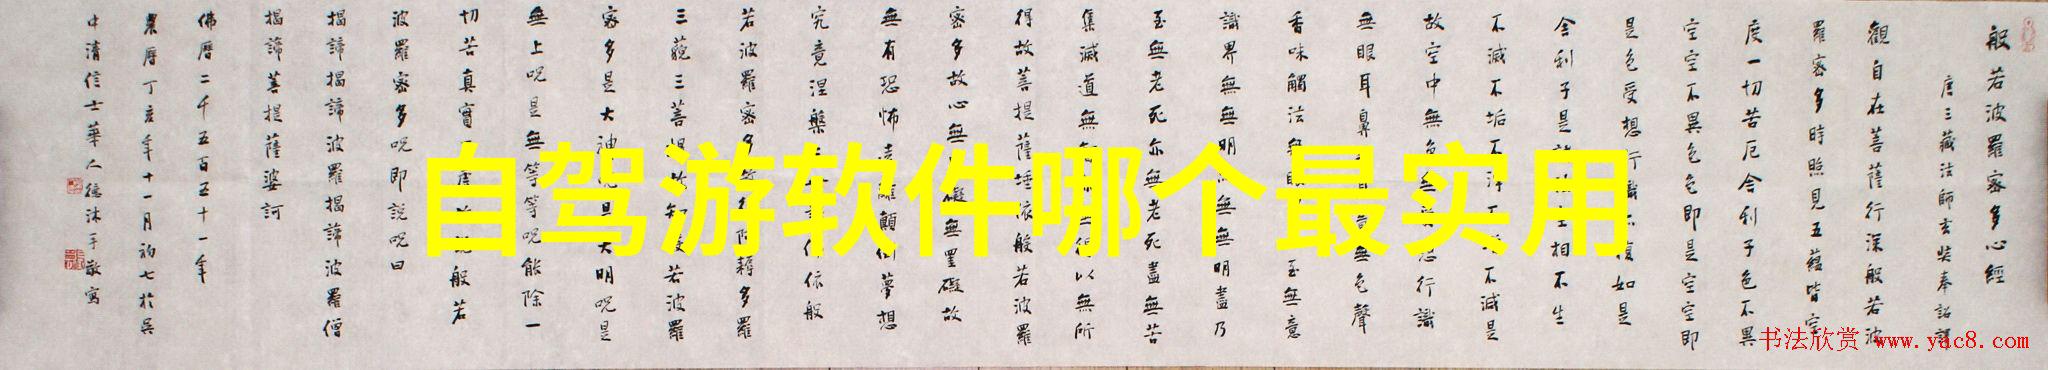 般若波羅密多心經
唐三藏法師玄奘奉詔譯
觀自在菩薩行深般若波
羅密多時照見五蘊皆空
度一切苦厄舍利子色不異
空空不異色色即是空空即
是色受想行識亦復如是
舍利子是諸法空相不生
不滅不垢不淨不增不減是
故空中無色無受想行識
無眼耳鼻舌身意無色聲
香味觸法無眼界乃至無意
識界無無明亦無無明盡乃
至無老死亦無老死盡無苦
集滅道無智亦無得以無所
得故菩提薩埵依般若波羅
密多故心無罣礙無罣礙故
無有恐怖遠離顛倒夢想
究竟涅槃三世諸佛依般
若波羅密多故得阿耨多羅
三藐三菩提故知般若波羅
密多是大神咒是大明咒是
無上咒是無等等咒能除一
切苦真實不虛故說般若
波羅密多咒即說咒曰
揭諦揭諦波羅揭諦波羅僧
揭諦菩提薩婆訶
佛曆二千五百五十一年
農曆丁亥年十一月初七於吳
中清信士華人德沐手敬寫
自驾游软件哪个最实用
书法欣赏 www.yac8.com